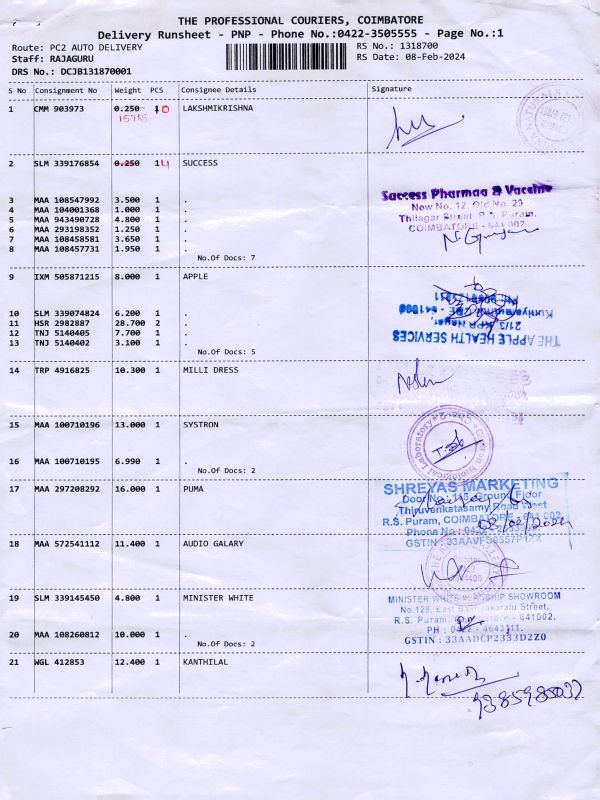 THE PROFESSIONAL COURIERS, COIMBATORE
Delivery Runsheet - PNP - Phone No.:0422-3505555 - Page No.:1
Route: PC2 AUTO DELIVERY RS No.: 1318700
Staff: RAJAGURU RS Date: 08-Feb-2024
DRS No.: DCJB131870001
S No Consignment No Weight PCS Consignee Details Signature
1 CMM 903973 0.250 10 LAKSHMIKRISHNA
2 SLM 339176854 0.250 14 SUCCESS
Success Pharmaa & Vaccine
3 MAA 108547992 3.500 1 . New No. 12, Old No. 29
4 MAA 104001368 1.000 1 . Thilagar Street, R.S. Puram,
5 MAA 943490728 4.800 1 . COIMBATORE - 641 002
6 MAA 293198352 1.250 1 .
7 MAA 108458581 3.650 1 .
8 MAA 108457731 1.950 1 .
No.Of Docs: 7
9 IXM 505871215 8.000 1 APPLE
10 SLM 339074824 6.200 1 .
11 HSR 2982887 28.700 2 .
12 TNJ 5140405 7.700 1 .
13 TNJ 5140402 3.100 1 .
THE APPLE HEALTH SERVICES
21/3, KPR Nagar,
No.Of Docs: 5
14 TRP 4916825 10.300 1 MILLI DRESS
15 MAA 100710196 13.000 1 SYSTRON
16 MAA 100710195 6.990 1 .
Biological Laboratory
No.Of Docs: 2
17 MAA 297208292 16.000 1 PUMA
SHREYAS MARKETING
Door No. 115, Ground Floor
Thiruvenkatasamy Road West
R.S. Puram, COIMBATORE - 641 002
Phone No : 0422
08/02/2024
18 MAA 572541112 11.400 1 AUDIO GALARY
19 SLM 339145450 4.800 1 MINISTER WHITE
MINISTER WHITE SHOWROOM
No.128, East Street,
R.S. Puram, - 641002.
PH : 0422 - 4643111.
20 MAA 108260812 10.000 1 .
GSTIN : 33AADCP2333D2Z0
No.Of Docs: 2
21 WGL 412853 12.400 1 KANTHILAL